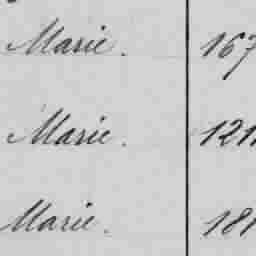 Marie. 167
Marie. 121
Marie. 181